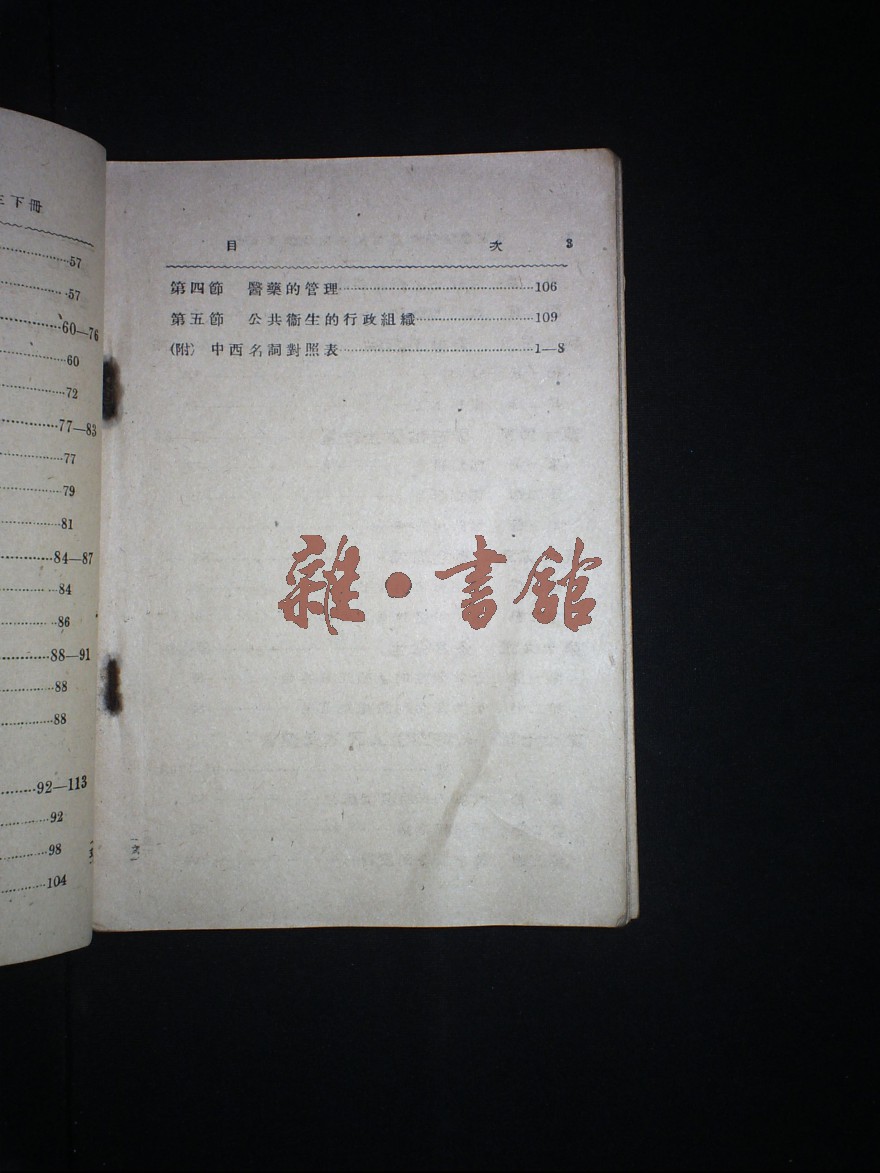 下冊
57
57
60—76
60
72
77—83
77
79
81
84—87
84
86
88—91
88
88
92—113
92
98
104
目 次 3
第四節 醫藥的管理 106
第五節 公共衞生的行政組織 109
(附) 中西名詞對照表 1—8
雜·書館